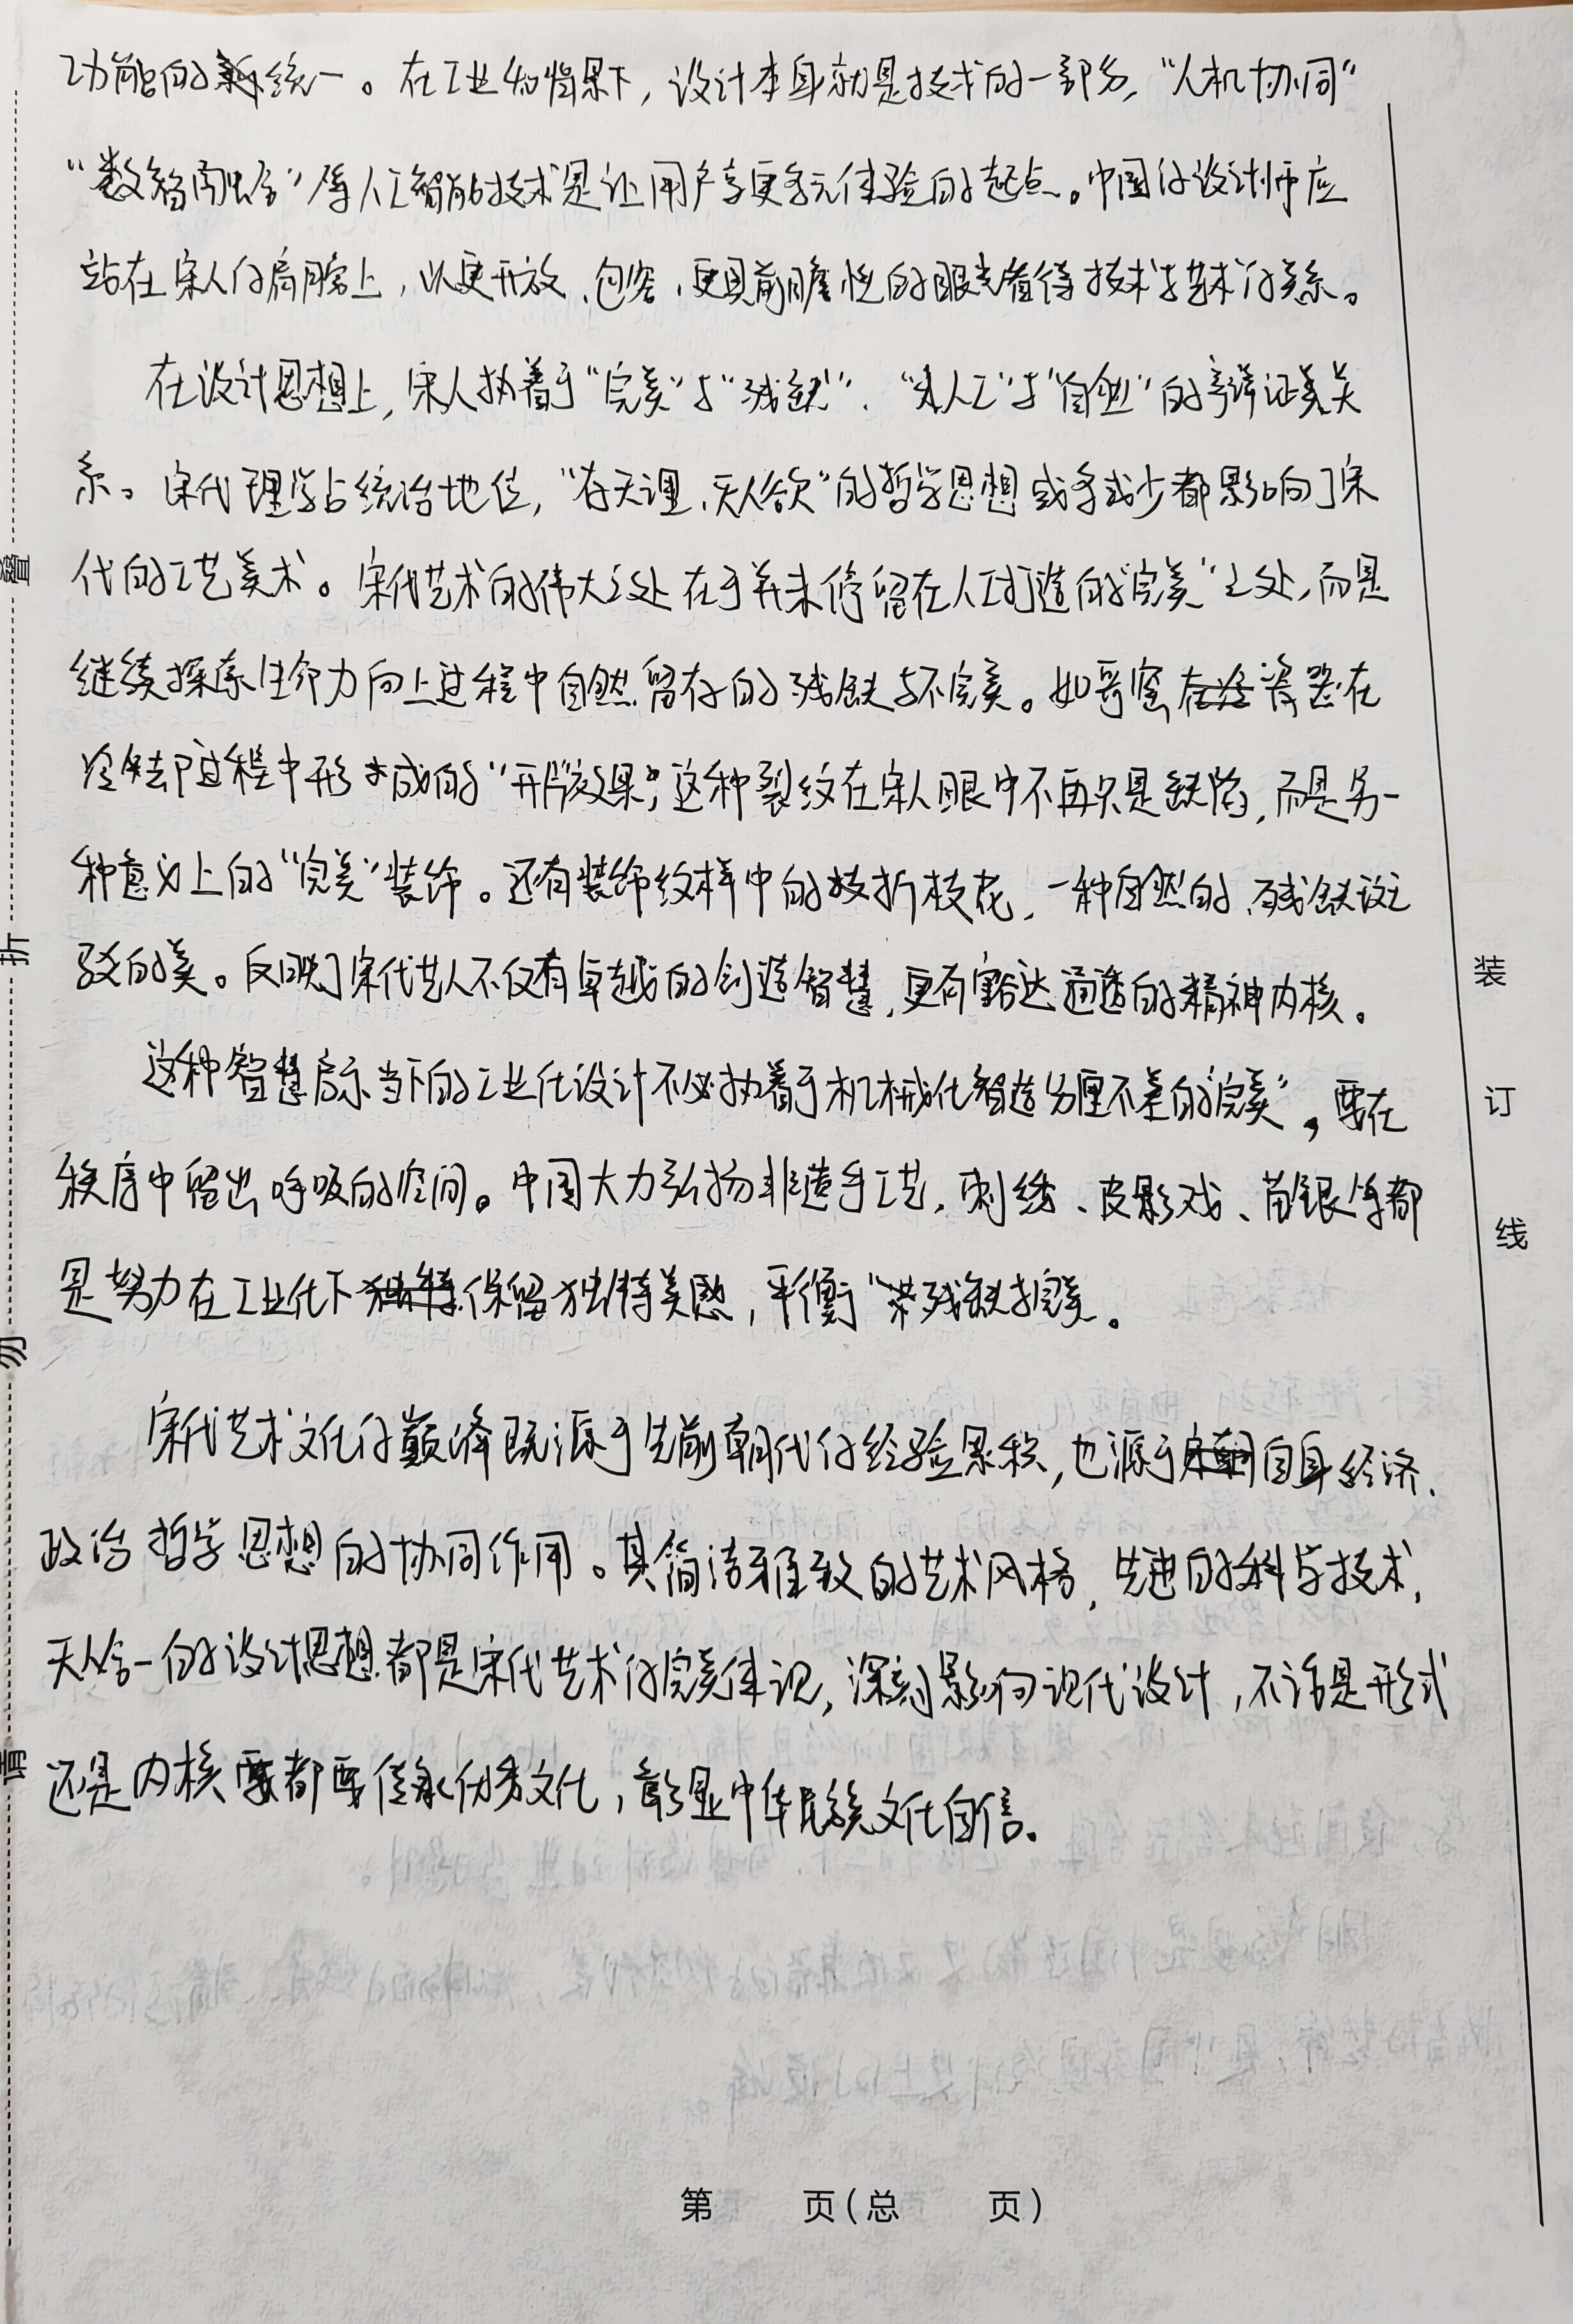 功能的统一。在工业4.0情景下，设计本身就是技术的一部分，“人机协同”
“数智融合”等人工智能技术是让用户享更多元体验的起点。中国的设计师应
站在宋人的肩膀上，以更开放、包容、更具前瞻性的眼光看待技术与艺术的关系。
在设计思想上，宋人执着于“完美”与“残缺”、“人工”与“自然”的辩证关
系。宋代理学占统治地位，“存天理，灭人欲”的哲学思想或多或少都影响了宋
代的工艺美术。宋代艺术的伟大之处在于并未停留在人工打造的“完美”之处，而是
继续探索生命力向上过程中自然留存的残缺与不完美。如哥窑瓷器在
冷却过程中形成的“开片效果”，这种裂纹在宋人眼中不再只是缺陷，而是另一
种意义上的“完美”装饰。还有装饰纹样中的折枝花，一种自然的、残缺斑
驳的美。反映了宋代艺人不仅有卓越的创造智慧，更有豁达通透的精神内核。
这种智慧启示当下的工业化设计不必执着于机械化智造分厘不差的“完美”，要在
秩序中留出呼吸的空间。中国大力弘扬非遗手工艺，刺绣、皮影戏、苗银等都
是努力在工业化下保留独特美感，平衡残缺与完美。
宋代艺术文化的巅峰既源于先前朝代的经验累积，也源于自身经济、
政治哲学思想的协同作用。其简洁雅致的艺术风格，先进的科学技术，
天人合一的设计思想都是宋代艺术的完美体现，深刻影响现代设计，不论是形式
还是内核都要传承优秀文化，彰显中华民族文化自信。
誊
折
勿
请
装
订
线
第 页（总 页）